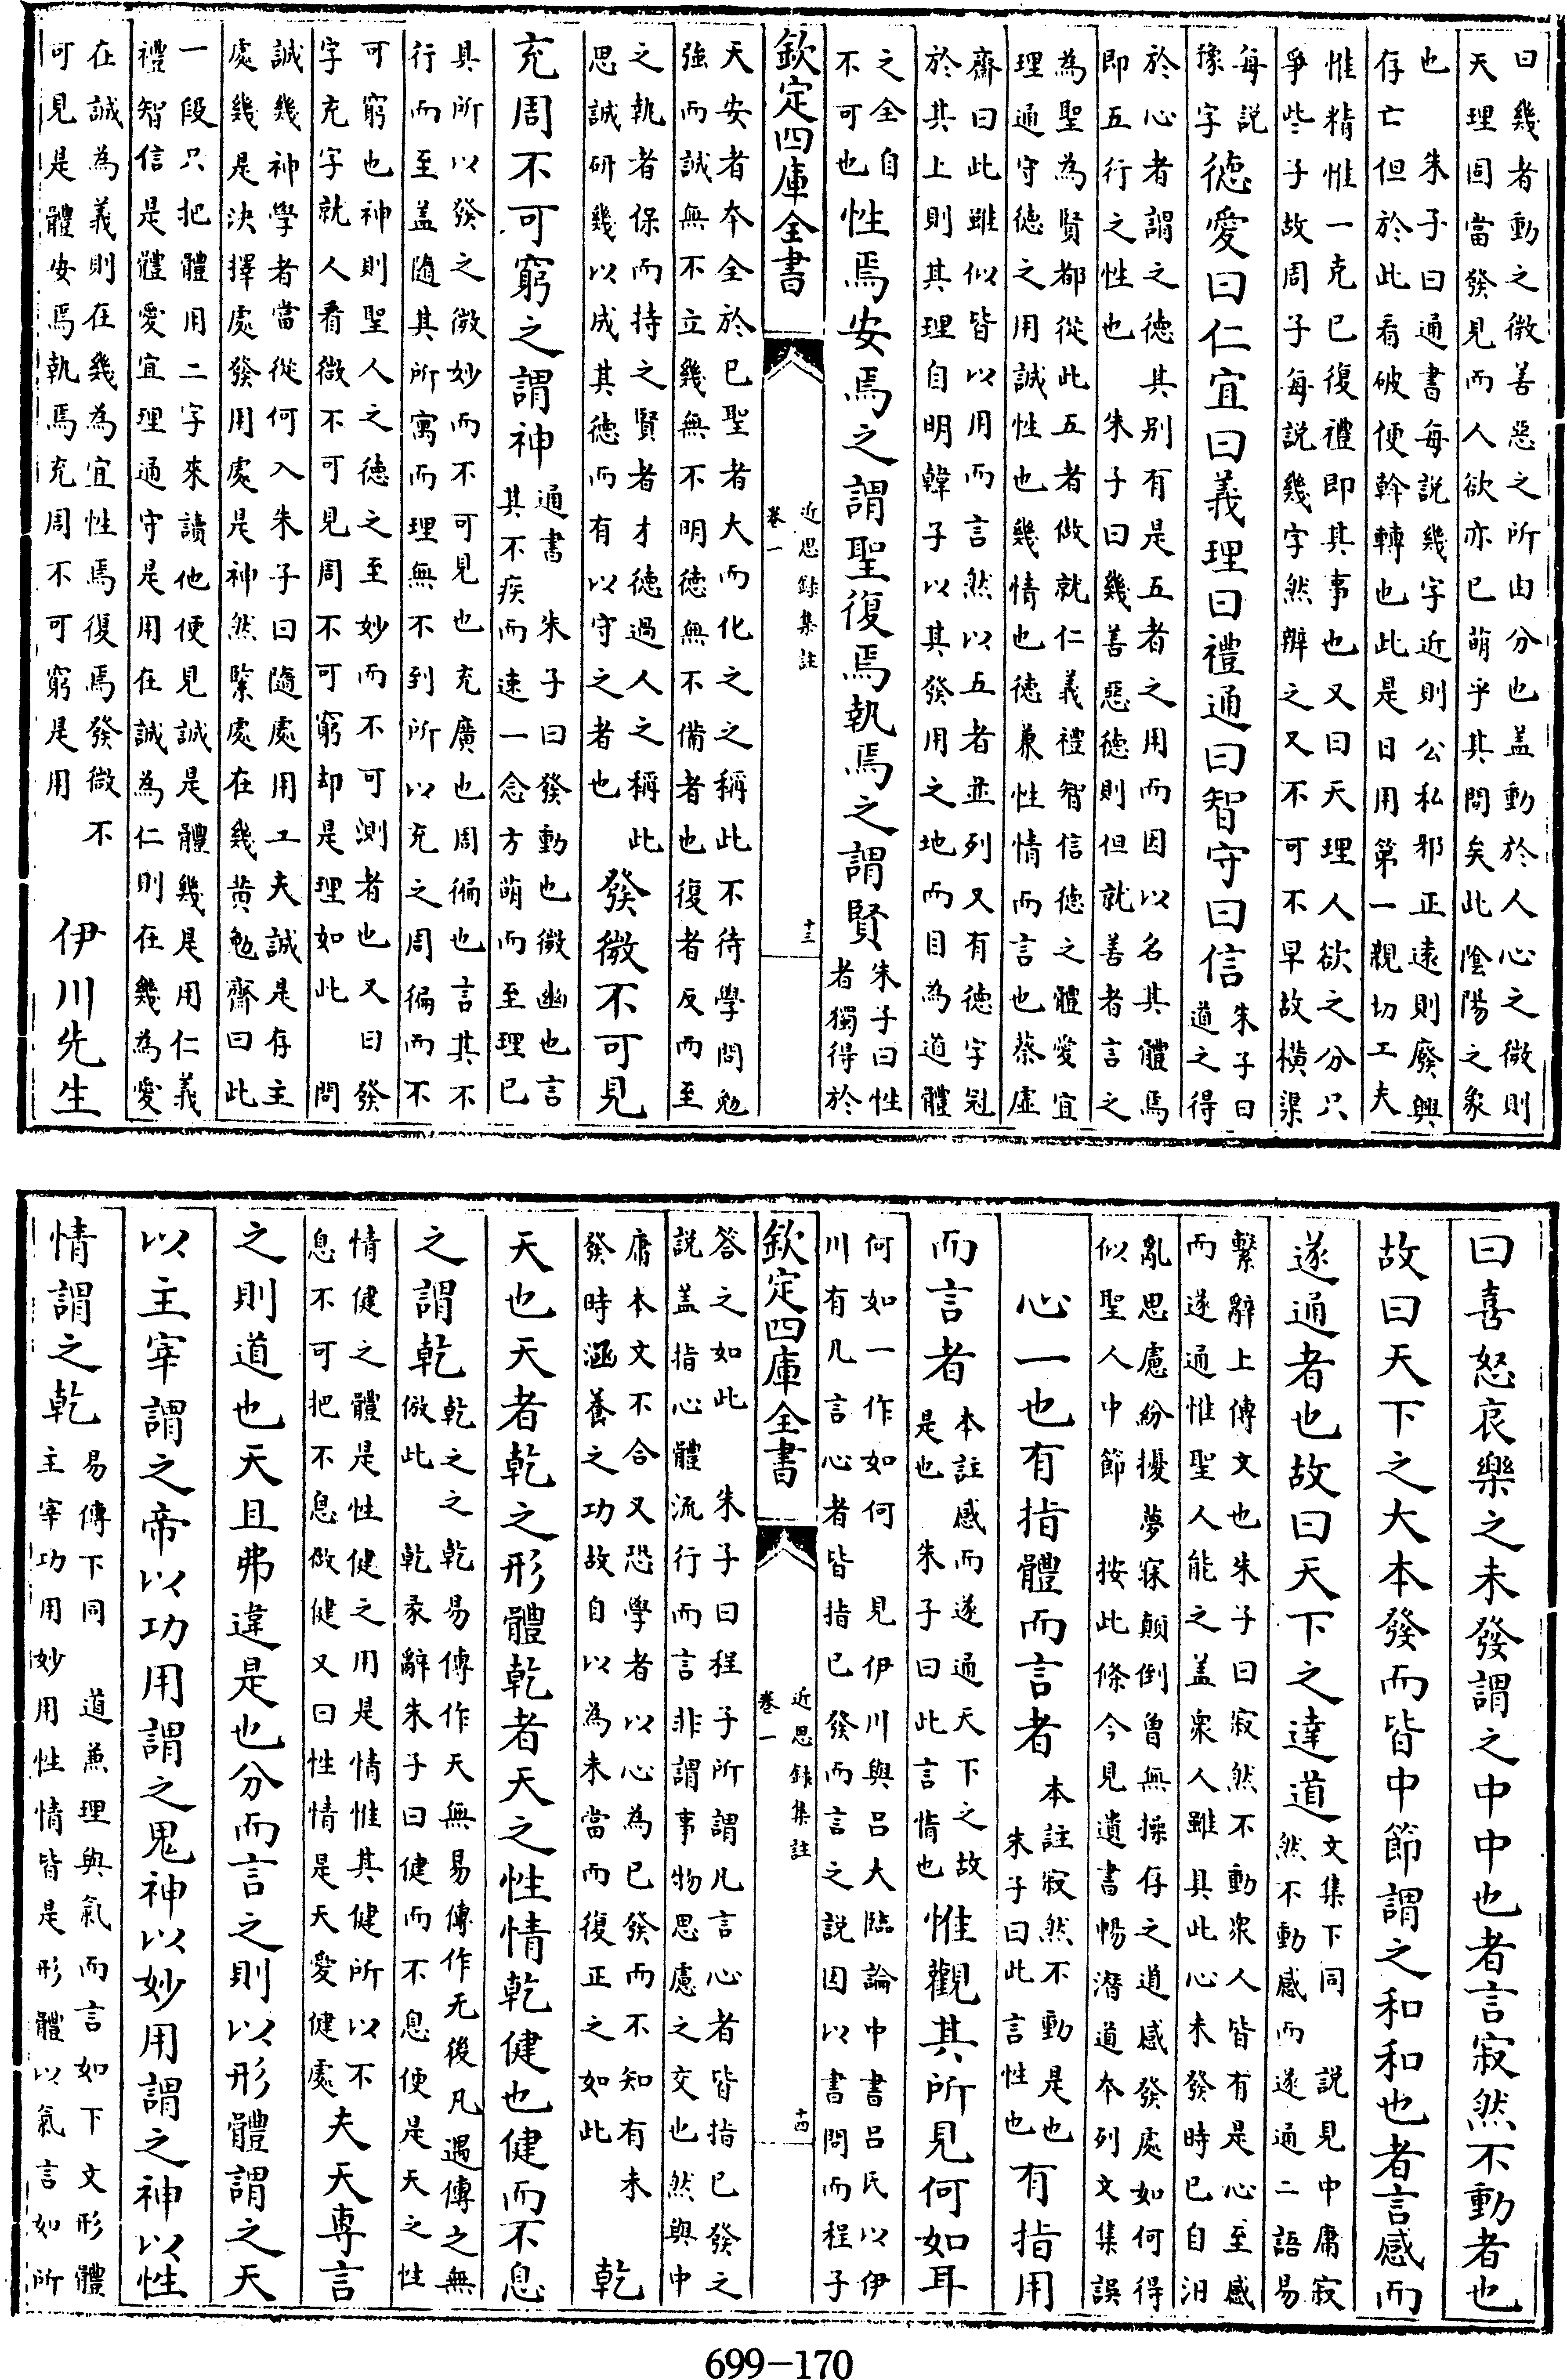 曰幾者動之微善惡之所由分也蓋動於人心之微則
天理固當發見而人欲亦已萌乎其間矣此陰陽之象
也　朱子曰通書每說幾字近則公私邪正遠則廢興
存亡但於此看破便斡轉也此是日用第一親切工夫
惟精惟一克已復禮即其事也又曰天理人欲之分只
爭些子故周子每說幾字然辨之又不可不早故橫渠
每說
豫字
德愛曰仁宜曰義理曰禮通曰智守曰信
朱子曰
道之得
於心者謂之德其别有是五者之用而因以名其體焉
即五行之性也　朱子曰幾善惡德則但就善者言之
為聖為賢都從此五者做就仁義禮智信德之體愛宜
理通守德之用誠性也幾情也德兼性情而言也蔡虛
齋曰此雖似皆以用而言然以五者並列又有德字冠
於其上則其理自明韓子以其發用之地而目為道體
之全自
不可也
性焉安焉之謂聖復焉執焉之謂賢
朱子曰性
者獨得於
欽定四庫全書
近思錄集註
卷一
十三
天安者本全於已聖者大而化之之稱此不待學問勉
強而誠無不立幾無不明德無不備者也復者反而至
之執者保而持之賢者才德過人之稱此
思誠研幾以成其德而有以守之者也
發微不可見
充周不可窮之謂神
通書　朱子曰發動也微幽也言
其不疾而速一念方萌而至理已
具所以發之微妙而不可見也充廣也周徧也言其不
行而至蓋隨其所寓而理無不到所以充之周徧而不
可窮也神則聖人之德之至妙而不可測者也又曰發
字充字就人看微不可見周不可窮却是理如此　問
誠幾神學者當從何入朱子曰隨處用工夫誠是存主
處幾是決擇處發用處是神然緊處在幾黄勉齋曰此
一段只把體用二字來讀他便見誠是體幾是用仁義
禮智信是體愛宜理通守是用在誠為仁則在幾為愛
在誠為義則在幾為宜性焉復焉發微不
可見是體安焉執焉充周不可窮是用
伊川先生
曰喜怒哀樂之未發謂之中中也者言寂然不動者也
故曰天下之大本發而皆中節謂之和和也者言感而
遂通者也故曰天下之達道
文集下同　說見中庸寂
然不動感而遂通二語易
繫辭上傳文也朱子曰寂然不動衆人皆有是心至感
而遂通惟聖人能之蓋衆人雖具此心未發時已自汨
亂思慮紛擾夢寐顛倒曾無操存之道感發處如何得
似聖人中節　按此條今見遺書暢潛道本列文集誤
心一也有指體而言者
本註寂然不動是也
朱子曰此言性也
有指用
而言者
本註感而遂通天下之故
是也　朱子曰此言情也
惟觀其所見何如耳
何如一作如何　見伊川與呂大臨論中書呂氏以伊
川有凡言心者皆指已發而言之說因以書問而程子
欽定四庫全書
近思錄集註
卷一
十四
答之如此　朱子曰程子所謂凡言心者皆指已發之
說蓋指心體流行而言非謂事物思慮之交也然與中
庸本文不合又恐學者以心為已發而不知有未
發時涵養之功故自以為未當而復正之如此
乾
天也天者乾之形體乾者天之性情乾健也健而不息
之謂乾
乾之之乾易傳作天無易傳作无後凡遇傳之無
倣此　乾彖辭朱子曰健而不息便是天之性
情健之體是性健之用是情惟其健所以不
息不可把不息做健又曰性情是天愛健處
夫天專言
之則道也天且弗違是也分而言之則以形體謂之天
以主宰謂之帝以功用謂之鬼神以妙用謂之神以性
情謂之乾
易傳下同　道兼理與氣而言如下文形體
主宰功用妙用性情皆是形體以氣言如所
699-170